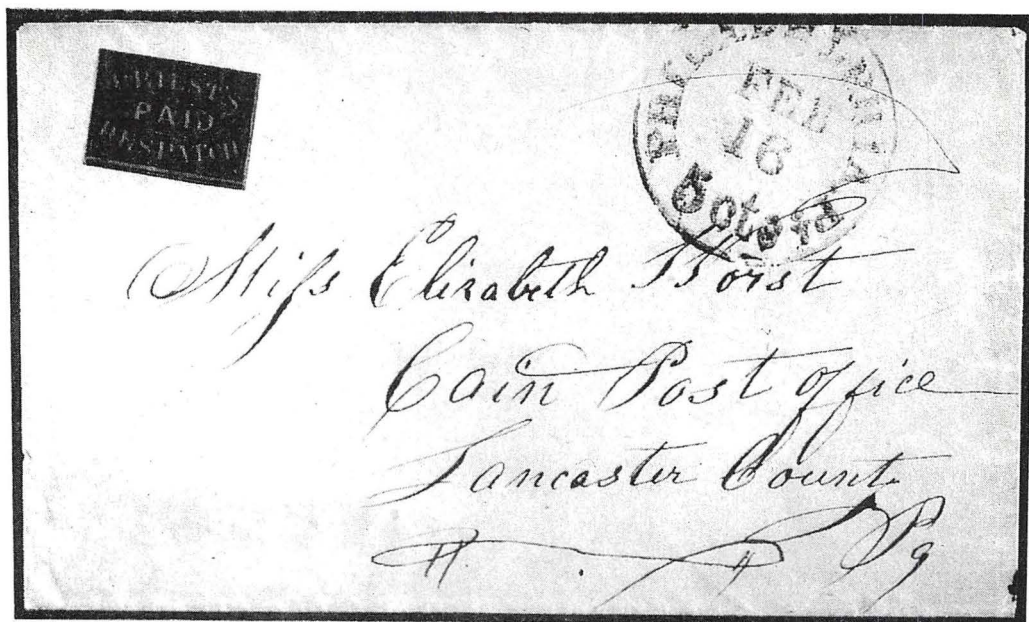 PRIEST'S
PAID
DESPATCH
PHILADELPHIA
FEB
16
5 cts
Miss Elizabeth
Cain Post office
Lancaster County
Pa